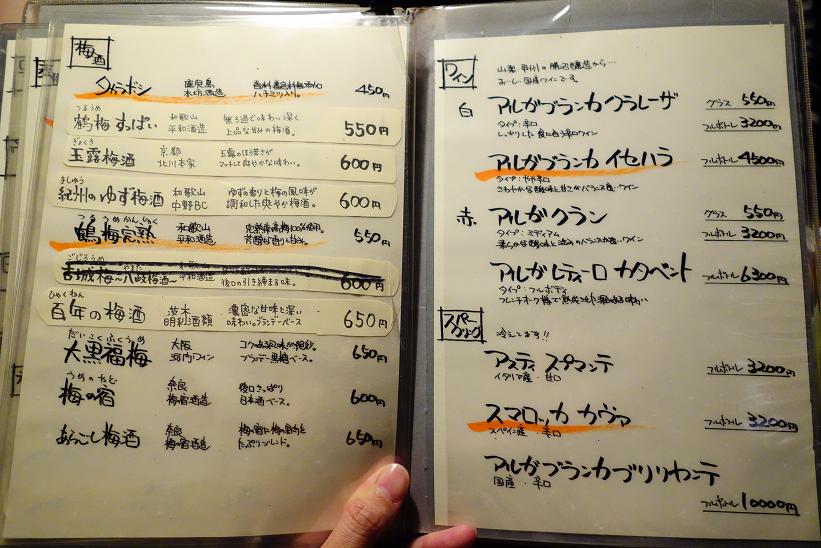 梅酒
鹿児島
ハチミツ入り。
450円
つるうめ
鶴梅 すっぱい
和歌山
平和酒造
無ろ過で味わい深く
上品な甘みの梅酒。
550円
ぎょくろ
玉露梅酒
京都
北川本家
玉露のほろ苦さが
マッチして爽やかな味わい。
600円
きしゅう
紀州のゆず梅酒
和歌山
中野BC
ゆずの香りと梅の風味が
調和した爽やか梅酒。
600円
つるうめかんじゅく
鶴梅完熟
和歌山
平和酒造
550円
平和酒造
後口の引き締まる味。
600円
ひゃくねん
百年の梅酒
茨木
明利酒類
濃密な甘味と深い
味わい。ブランデーベース
650円
だいこくふくうめ
大黒福梅
大阪
河内ワイン
ブランデー黒糖ベース。
650円
うめのやど
梅の宿
奈良
梅の宿酒造
後口さっぱり
日本酒ベース。
600円
あらごし梅酒
奈良
梅の宿酒造
たっぷりブレンド。
650円
ワイン
山梨 甲州の勝沼醸造から…
おいしい国産ワインです。
白
アルガブランカ クラレーザ
タイプ:辛口
しっかりした食に合う辛口ワイン
グラス 550円
フルボトル 3200円
アルガブランカ イセハラ
タイプ:やや辛口
さわやかな酸味と甘さがバランス良いワイン
フルボトル 4500円
赤
アルガ クラン
タイプ:ミディアム
グラス 550円
フルボトル 3200円
アルガ レティーロ カタベント
タイプ:フルボディ
フルボトル 6300円
スパークリング
冷えてます!!
アスティ スプマンテ
イタリア産・甘口
フルボトル 3200円
スマロッカ カヴァ
スペイン産・辛口
フルボトル 3200円
アルガブランカブリリャンテ
国産・辛口
フルボトル 10000円